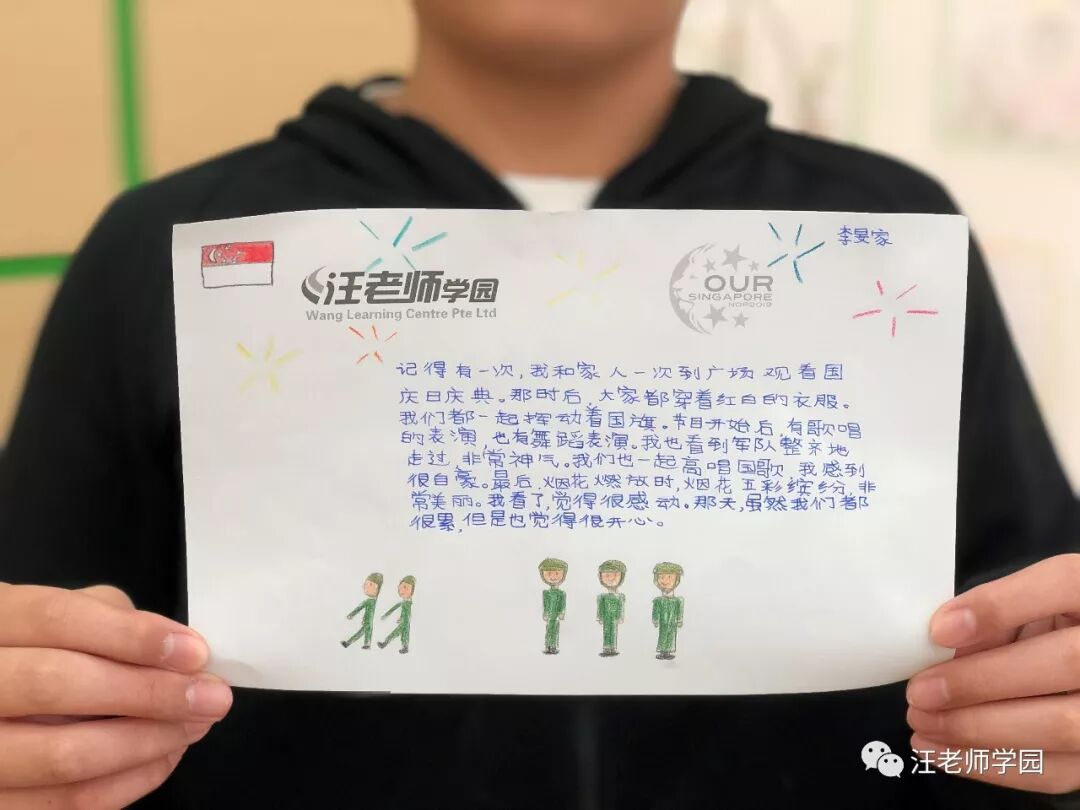 李旻家
汪老师学园
Wang Learning Centre Pte Ltd
OUR
SINGAPORE
NDP2019
记得有一次,我和家人一次到广场观看国
庆日庆典。那时后,大家都穿着红白的衣服。
我们都一起挥动着国旗。节目开始后,有歌唱
的表演,也有舞蹈表演。我也看到军队整齐地
走过,非常神气。我们也一起高唱国歌,我感到
很自豪。最后,烟花燃放时,烟花五彩缤纷,非
常美丽。我看了,觉得很感动。那天,虽然我们都
很累,但是也觉得很开心。
汪老师学园